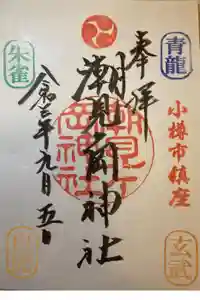 奉拝
青龍
小樽市鎮座
玄武
潮見ヶ岡神社
潮見ヶ岡神社
朱雀
令和三年九月五日
白虎